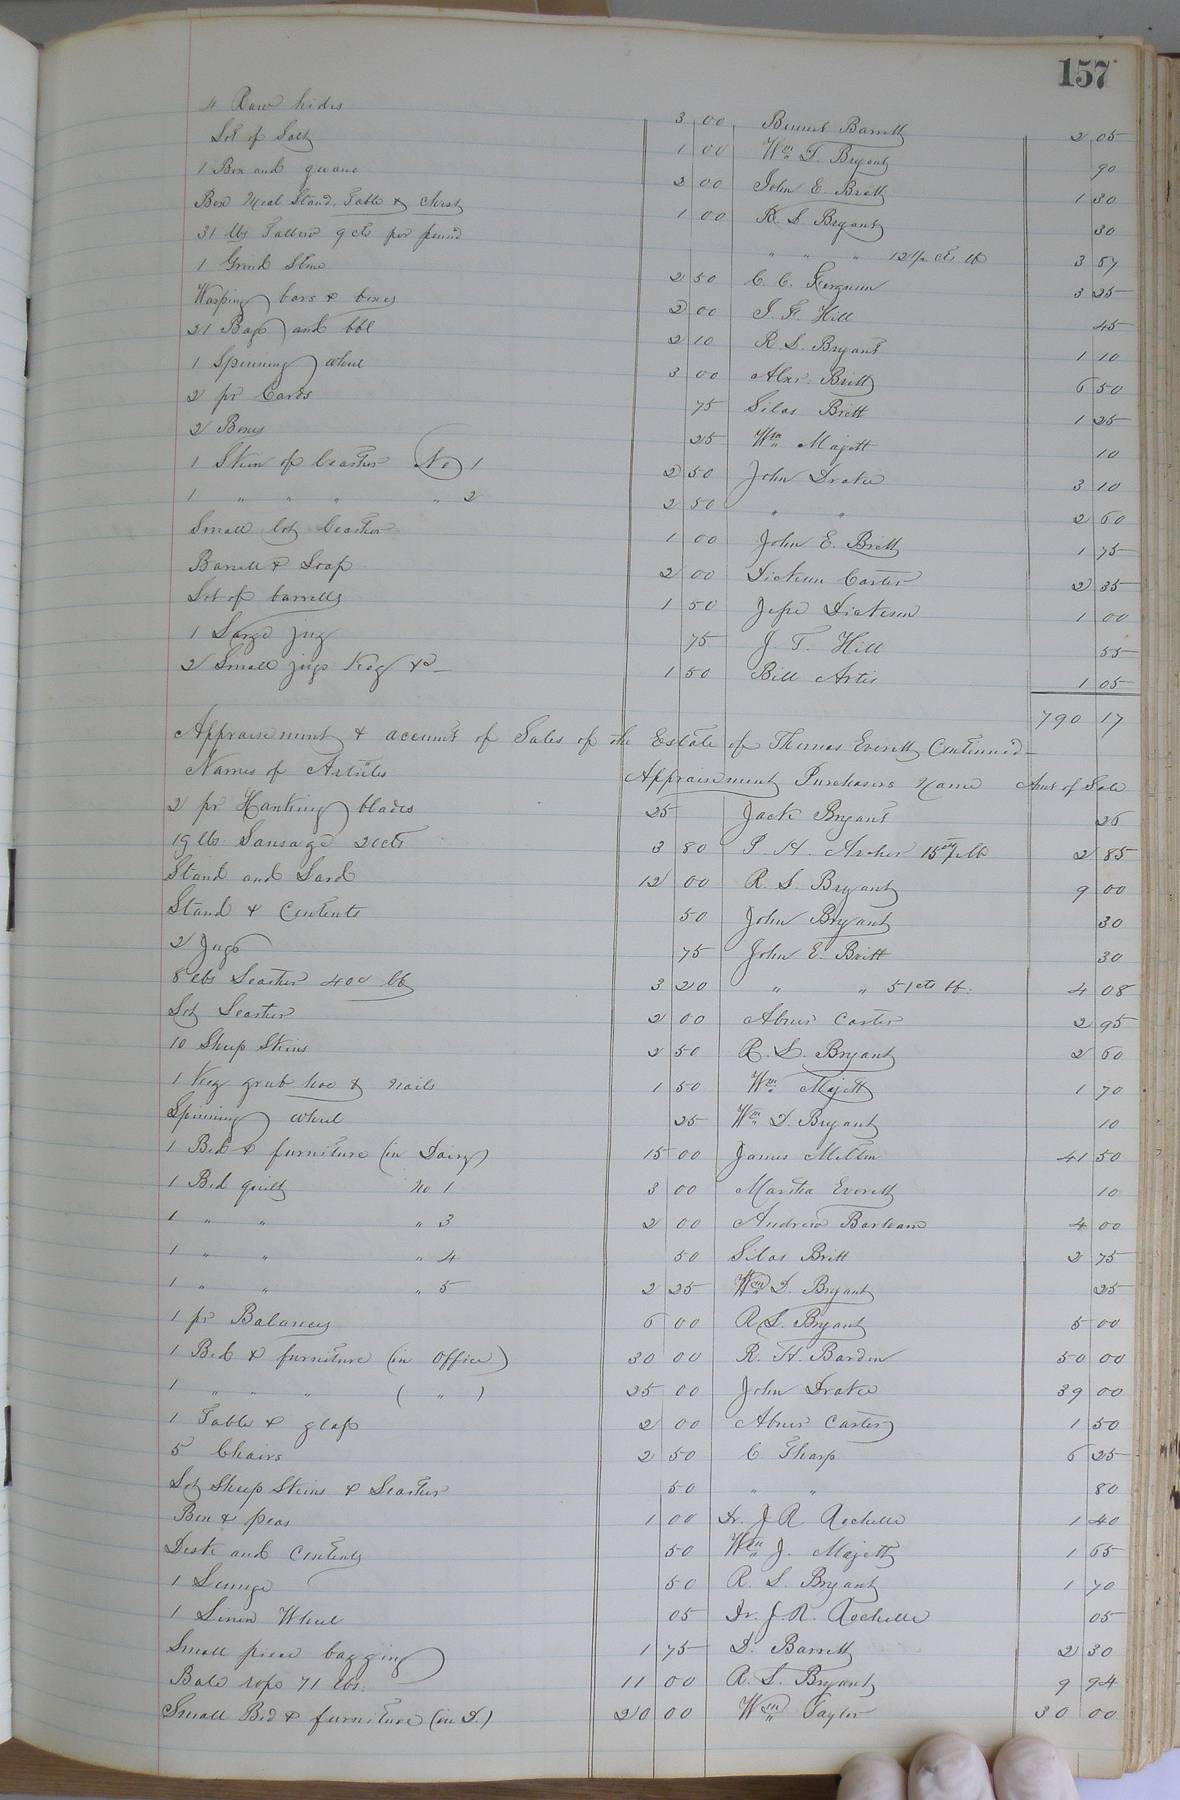 157
4 Raw hides 3 00 Barrett 2 05
Lot of Salt 1 00 Wm D. Bryant 90
1 Box and guano 2 00 John E. Britt 1 30
Box Meat Stand, Table & chest 1 00 R S Bryant 30
31 lbs Tallow 9 cts per pound " " " 12 1/2 cts lb 3 87
1 Grind Stone 2 50 C. C. Ferguson 3 25
Warping bars & boxes 2 00 J. T. Hill 45
21 Bags and bbl 2 10 R S. Bryant 1 10
1 Spinning wheel 3 00 Alxr. Britt 6 50
2 pr Cards 75 Silas Britt 1 25
2 Boxes 25 Wm Majett 10
1 Skin of Leather No 1 2 50 John Drake 3 10
1 " " " " 2 2 50 " " 2 60
Small lot Leather 1 00 John E. Britt 1 75
Barrell & Soap 2 00 Dickson Carter 2 35
Lot of barrells 1 50 Jesse Dickson 1 00
1 Large jug 75 J. T. Hill 55
2 Small jugs Keg &c 1 50 Bill Artis 1 05
790 17
Appraisement & account of Sales of the Estate of Thomas Everett Continued
Names of Articles Appraisement Purchasers Name Amt of Sale
2 pr Hanking blades 25 Jack Bryant 26
19 lbs. Sausage 20cts 3 80 P. H. Archer 15cts pr lb 2 85
Stand and Lard 12 00 R. S. Bryant 9 00
Stand & Contents 50 John Bryant 30
2 Jugs 75 John E. Britt 30
8 lbs Leather 40c lb 3 20 " " 51cts lb. 4 08
Lot Leather 2 00 Abner Carter 2 95
10 Sheep Skins 2 50 R. S. Bryant 2 60
1 Keg grub hoe & nails 1 50 Wm Majett 1 70
Spinning wheel 25 Wm D. Bryant 10
1 Bed & furniture (in Dairy) 15 00 James Melton 41 50
1 Bed quilt No 1 3 00 Martha Everett 10
1 " " " 3 2 00 Andrew Barham 4 00
1 " " " 4 50 Silas Britt 2 75
1 " " " 5 2 25 Wm D. Bryant 25
1 pr Balances 6 00 R S. Bryant 5 00
1 Bed & furniture (in Office) 30 00 R. H. Barden 50 00
1 " " " ( " ) 25 00 John Drake 39 00
1 Table & glass 2 00 Abner Carter 1 50
5 Chairs 2 50 C Tharp 6 25
Lot Sheep Skins & Leather 50 " " 80
Box & peas 1 00 Dr. J R Rochelle 1 40
Desk and Contents 50 Wm J. Majett 1 65
1 Lounge 50 R. S. Bryant 1 70
1 Linen Wheel 05 Dr. J. R. Rochelle 05
Small piece bagging 1 75 D. Barrett 2 30
Bale rope 71 lbs. 11 00 R. S. Bryant 9 94
Small Bed & furniture (in D.) 20 00 Wm Taylor 30 00